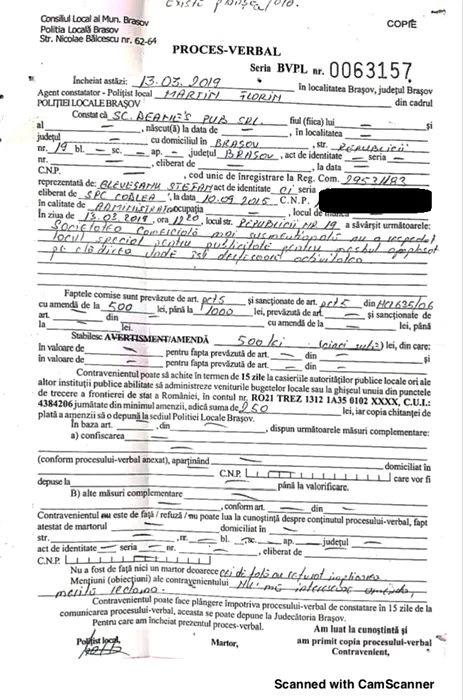 Existe planșea foto.
Consiliul Local al Mun. Brasov
Politia Locală Brasov
Str. Nicolae Bălcescu nr. 62-64
COPIE
PROCES-VERBAL
Seria BVPL nr. 0063157
Încheiat astăzi: 13.03.2019 în localitatea Brașov, județul Brașov
Agent constatator - Polițist local MARTIN FLORIN din cadrul
POLIȚIEI LOCALE BRAȘOV
Constat că SC. DEANE'S PUB SRL fiul (fiica) lui — și
al — , născut(ă) la data de — , în localitatea —
județul — cu domiciliul în BRAȘOV , str. REPUBLICII
nr. 19 bl. — sc. — ap. — județul BRAȘOV , act de identitate — seria —
nr. — , eliberat de — , la data —
C.N.P. — , cod unic de înregistrare la Reg. Com. 
reprezentată de: ȘTEFAN act de identitate CI seria
eliberat de SPC CODLEA , la data 10.09.2015 C.N.P.
în calitate de ADMINISTRATOR ocupația — , locul de muncă
În ziua de 13.03.2019, ora 1220 locul str. REPUBLICII NR 19 a săvârșit următoarele:
Societatea Comercială mai susmenționată nu a respectat
locul special pentru publicitate pentru amplasat
pe clădirea unde își desfășoară activitatea
Faptele comise sunt prevăzute de art. pct 5 și sancționate de art. pct 5 din HCL 635/06
cu amendă de la 500 lei, până la 1000 lei, prevăzute de art. — și sancționate de
art. — din — cu amendă de la — lei, până
la — lei.
Stabilesc AVERTISMENT/AMENDĂ 500 lei (cinci sute) lei, din care:
în valoare de — pentru fapta prevăzută de art. — din — și
în valoare de — pentru fapta prevăzută de art. — din —
Contravenientul poate să achite în termen de 15 zile la casieriile autorităților publice locale ori ale
altor instituții publice abilitate să administreze veniturile bugetelor locale sau la ghișeul unuia din punctele
de trecere a frontierei de stat a României, în contul nr. RO21 TREZ 1312 1A35 0102 XXXX, C.U.I.:
4384206 jumătate din minimul amenzii, adică suma de 250 lei, iar copia chitanței de
plată a amenzii să o depună la sediul Politiei Locale Brașov.
În baza art. — , din — , dispun următoarele măsuri complementare:
a) confiscarea —
(conform procesului-verbal anexat), aparținând — domiciliat în
— C.N.P. care vor fi
depuse la — până la valorificare.
B) alte măsuri complementare —
— , conform art. — din —
Contravenientul nu este de față / refuză / nu poate lua la cunoștință despre conținutul procesului-verbal, fapt
atestat de martorul — domiciliat în —
str. — , nr. — bl. — , sc. — ap. — județul —
act de identitate — seria — nr. — , eliberat de —
C.N.P.
Nu a fost de față nici un martor deoarece cei de față au refuzat implicarea
Mențiuni (obiecțiuni) ale contravenientului NU mă interesează amenda,
merită reclama.
Contravenientul poate face plângere împotriva procesului-verbal de constatare în 15 zile de la
comunicarea procesului-verbal, aceasta se poate depune la Judecătoria Brașov.
Pentru care am încheiat prezentul proces-verbal.
Am luat la cunoștință și
Polițist local,
Martor,
am primit copia procesului-verbal
Contravenient,
Scanned with CamScanner